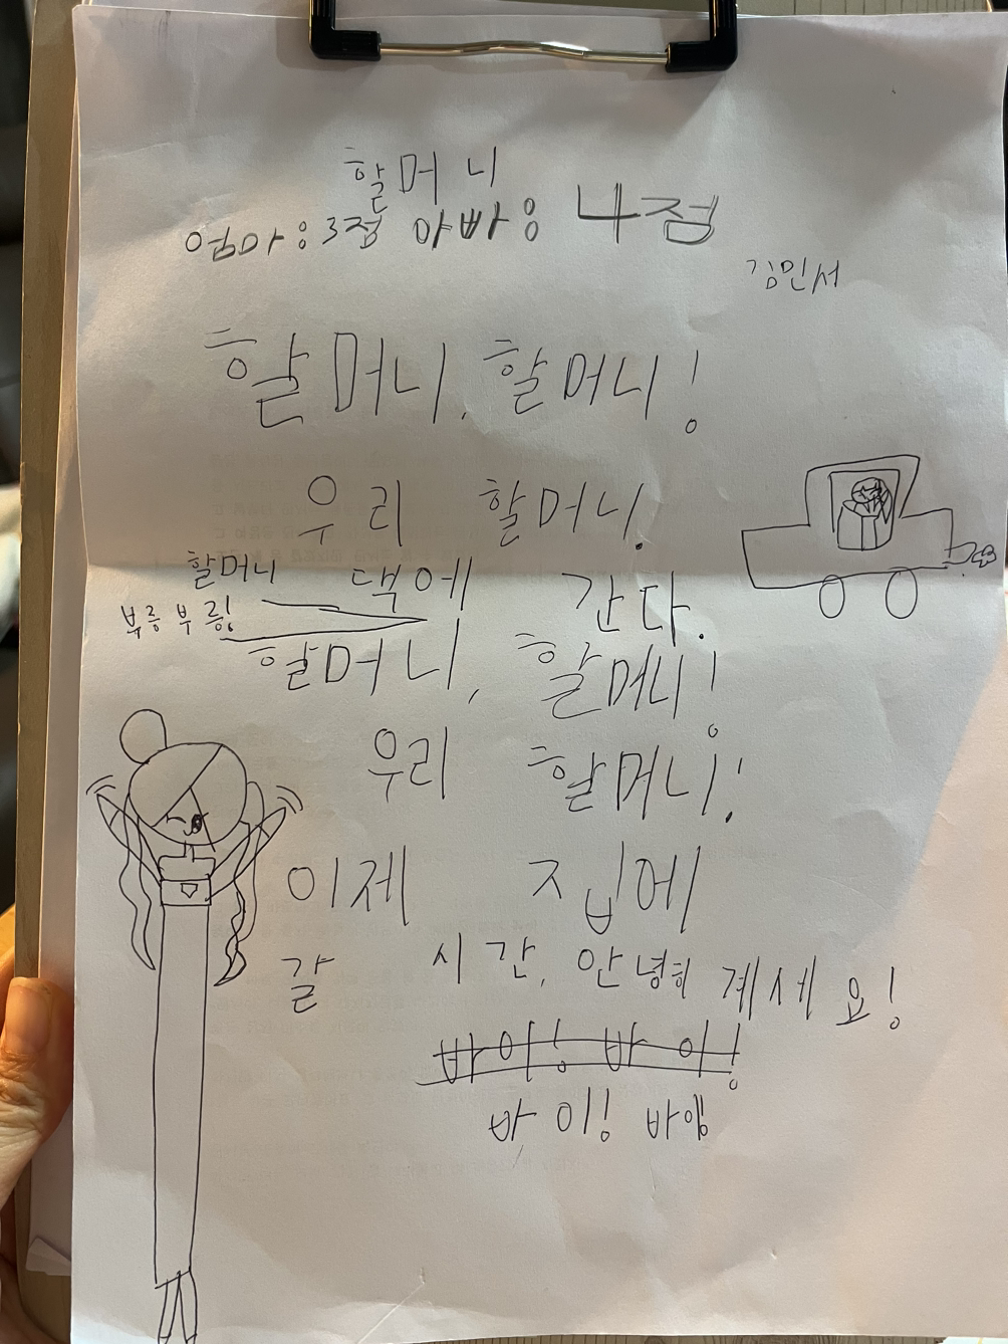 할머니
엄마: 3점 아빠: 4점
김민서
할머니, 할머니!
우리 할머니.
할머니 댁에 간다.
부릉 부릉!
할머니, 할머니!
우리 할머니!
이제 집에
갈 시간, 안녕히 계세요!
바이! 바이!
바이! 바이!